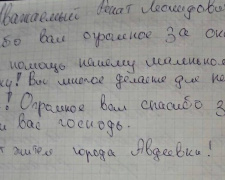 Уважаемый Ринат Леонидович
бо вам огромное за ока
помощь нашему маленьком
ку! Вы многое делаете для не
! Огромное вам спасибо з
и вас господь.
жители города Авдеевки!